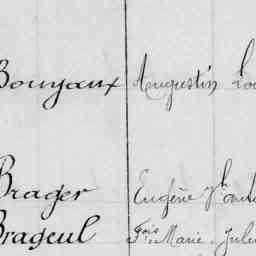 Bouyaux Augustin
Brager Eugène
Brageul Fois Marie Jules